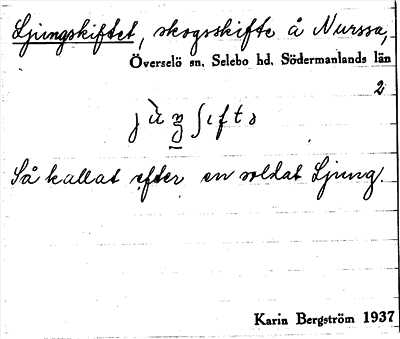 Ljungskiftet, skogsskifte å Nurssa,
Överselö sn. Selebo hd. Södermanlands län
2
Så kallat efter en soldat Ljung.
Karin Bergström 1937